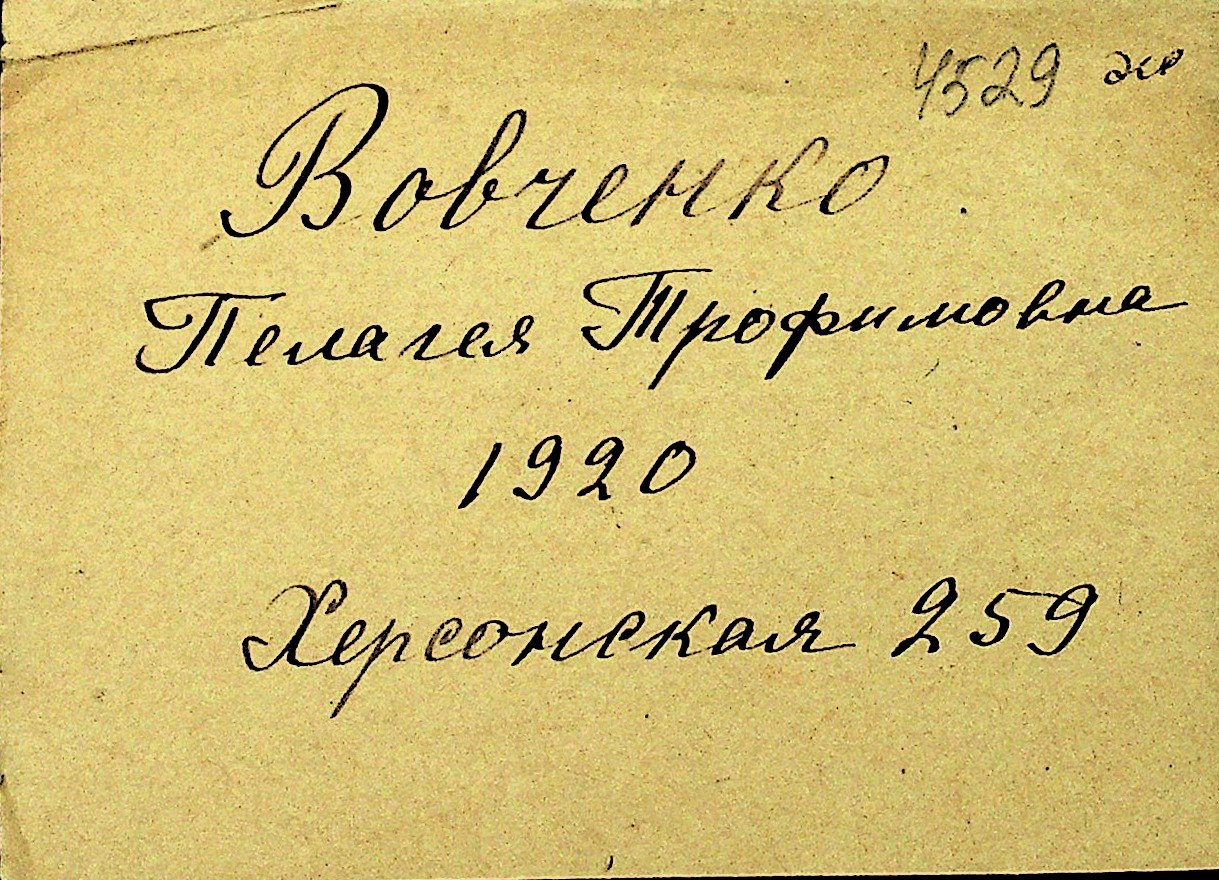 4529 ж
Вовченко
Пелагея Трофимовна
1920
Херсонская 259